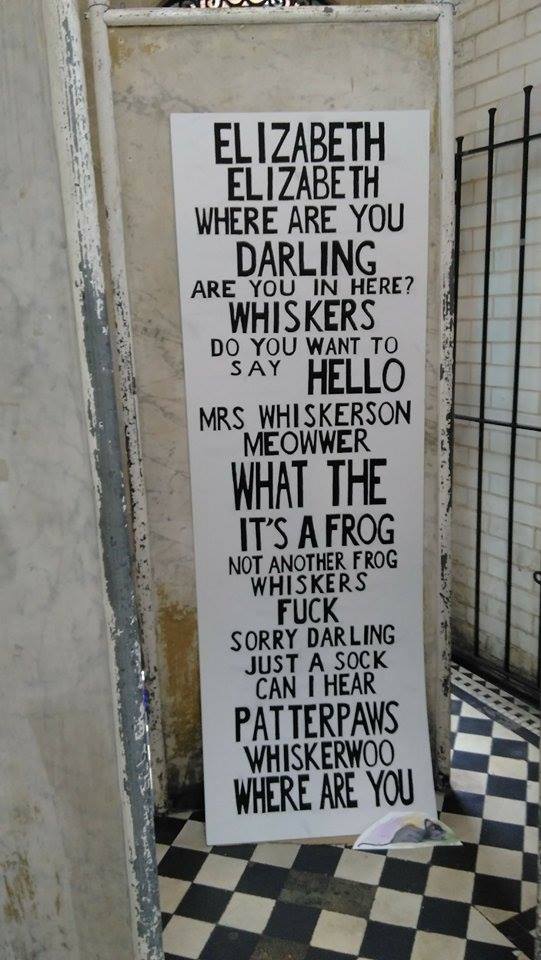 ELIZABETH
ELIZABETH
WHERE ARE YOU
DARLING
ARE YOU IN HERE?
WHISKERS
DO YOU WANT TO
SAY HELLO
MRS WHISKERSON
MEOWWER
WHAT THE
IT'S A FROG
NOT ANOTHER FROG
WHISKERS
FUCK
SORRY DARLING
JUST A SOCK
CAN I HEAR
PATTERPAWS
WHISKERWOO
WHERE ARE YOU